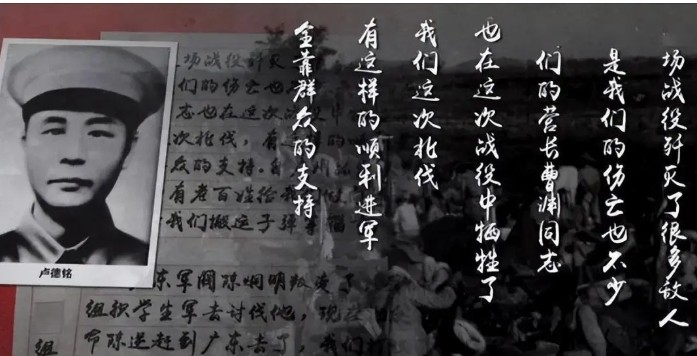 场战役歼灭了很多敌人
是我们的伤亡也不少
们的营长曹渊同志
也在这次战役中牺牲了
我们这次北伐
有这样的顺利进军
全靠群众的支持
卢德铭
场战役歼灭
们的伤亡也
志也在这次
次北伐，有
众的支持。
有老百姓给我
我们搬运子弹
东军阀陈炯明叛变了
组织学生军去讨伐他，现在
赶到广东去了，我们
组